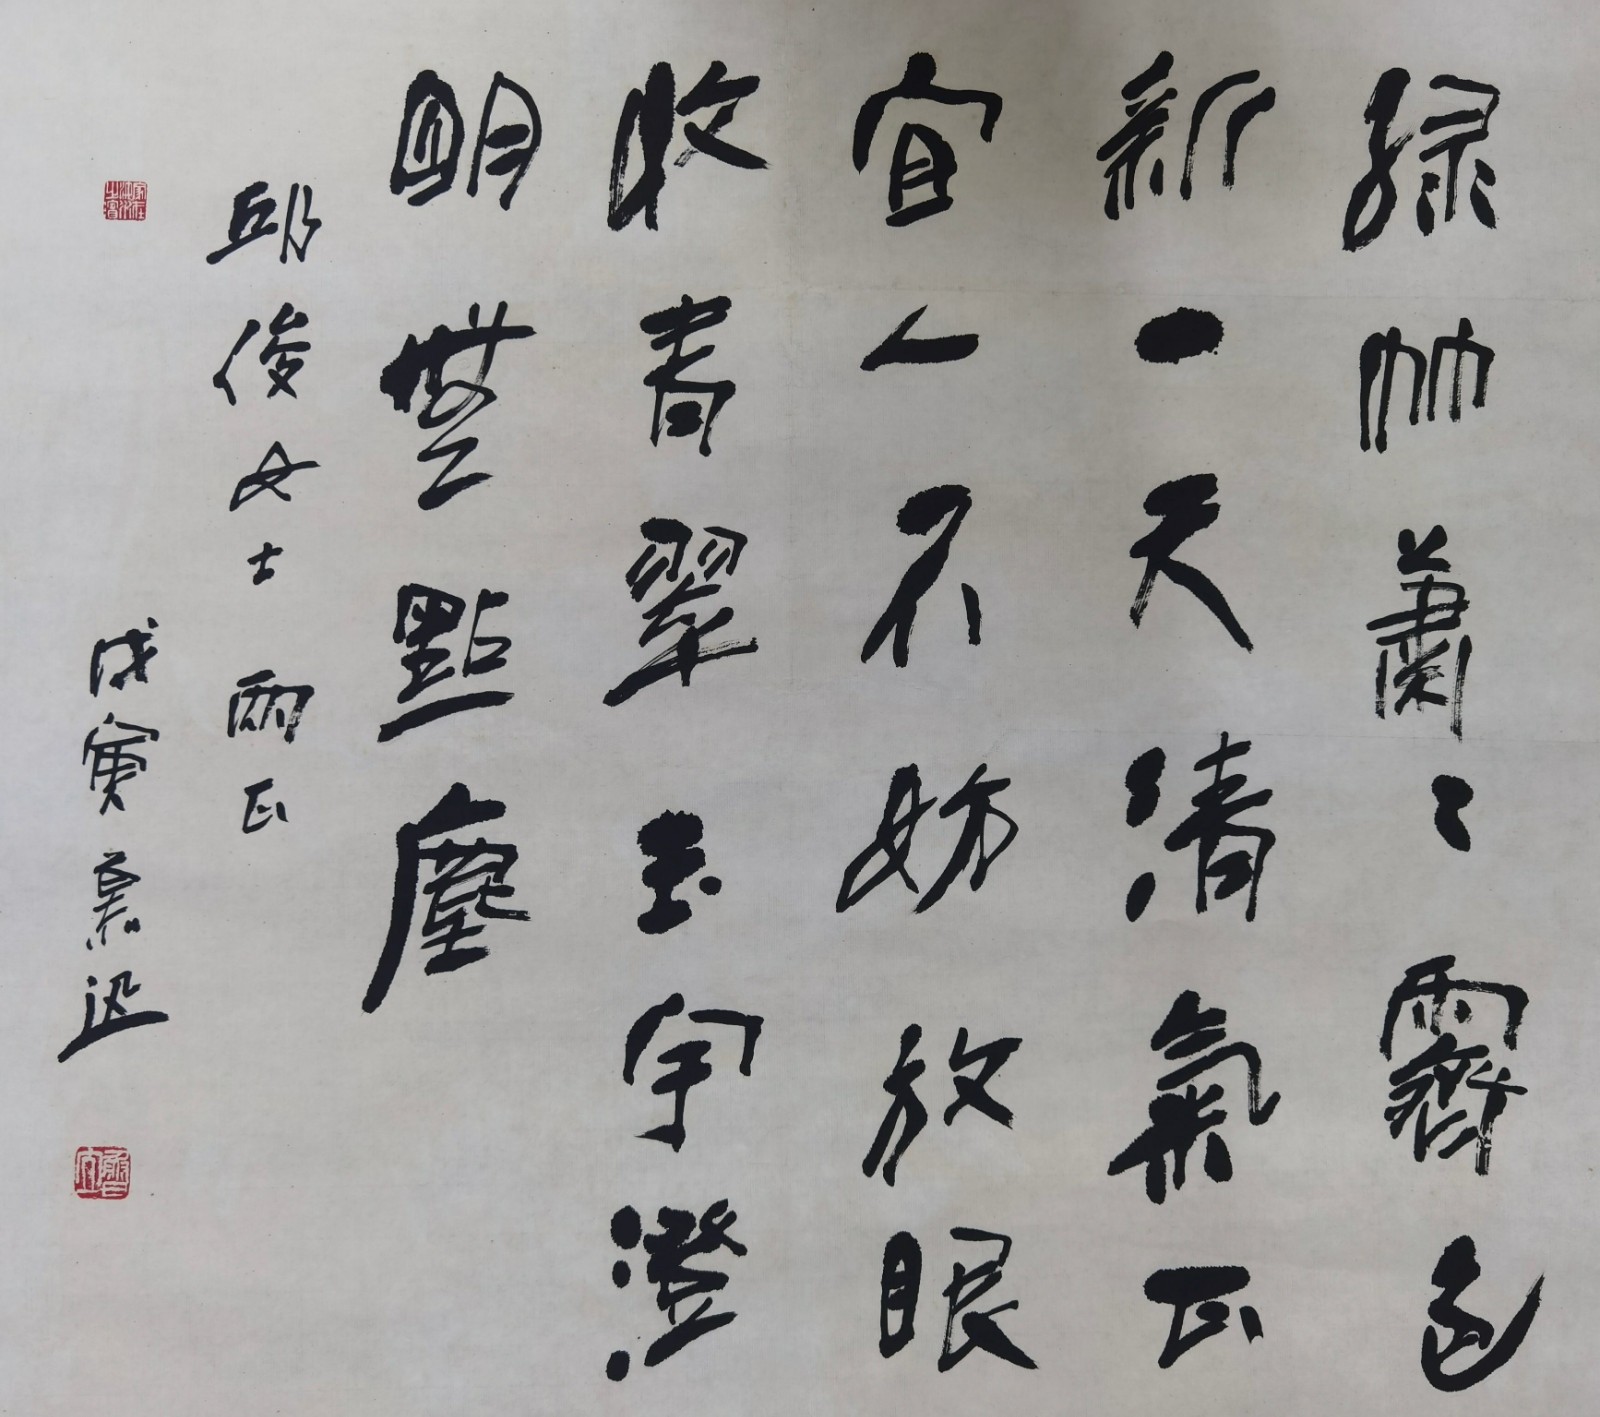 綠竹蕭〻霽色
新一天清氣正
宜人不妨放眼
收春翠玉宇澄
明無點塵
邱俊女士兩正
戊寅慕迅